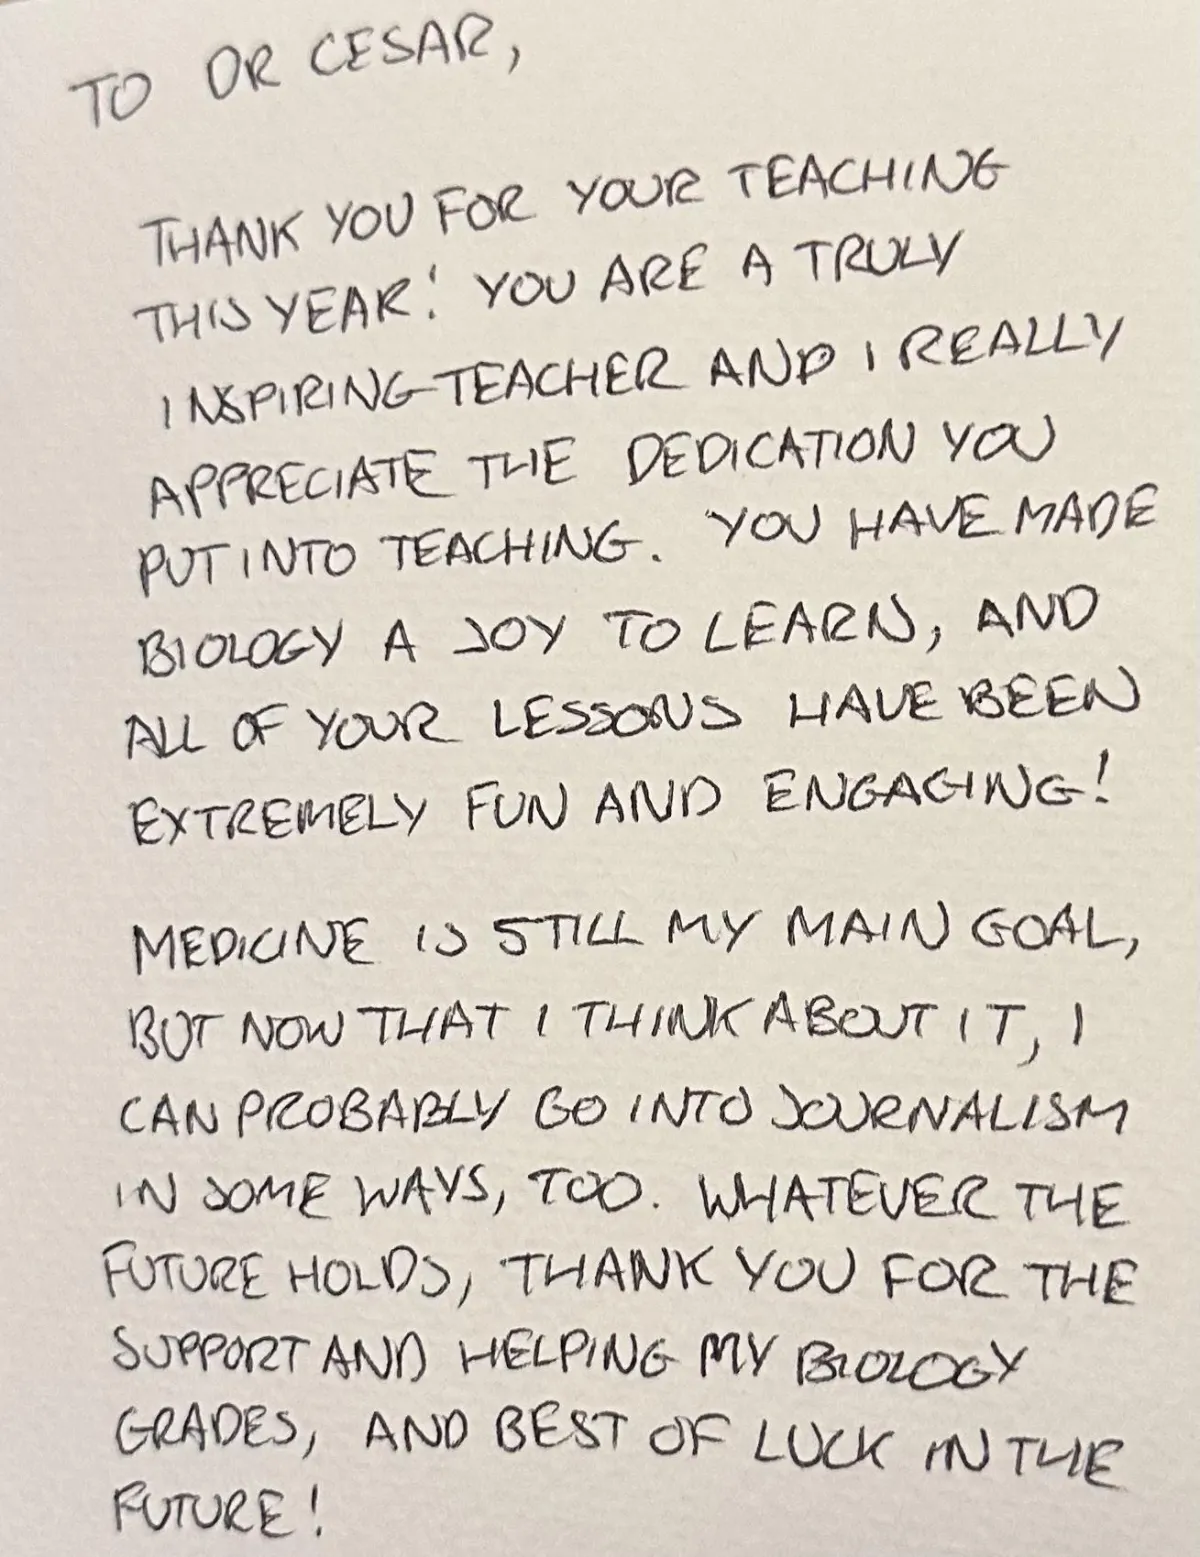 TO DR CESAR,
THANK YOU FOR YOUR TEACHING
THIS YEAR! YOU ARE A TRULY
INSPIRING TEACHER AND I REALLY
APPRECIATE THE DEDICATION YOU
PUT INTO TEACHING. YOU HAVE MADE
BIOLOGY A JOY TO LEARN, AND
ALL OF YOUR LESSONS HAVE BEEN
EXTREMELY FUN AND ENGAGING!
MEDICINE IS STILL MY MAIN GOAL,
BUT NOW THAT I THINK ABOUT IT, I
CAN PROBABLY GO INTO JOURNALISM
IN SOME WAYS, TOO. WHATEVER THE
FUTURE HOLDS, THANK YOU FOR THE
SUPPORT AND HELPING MY BIOLOGY
GRADES, AND BEST OF LUCK IN THE
FUTURE!